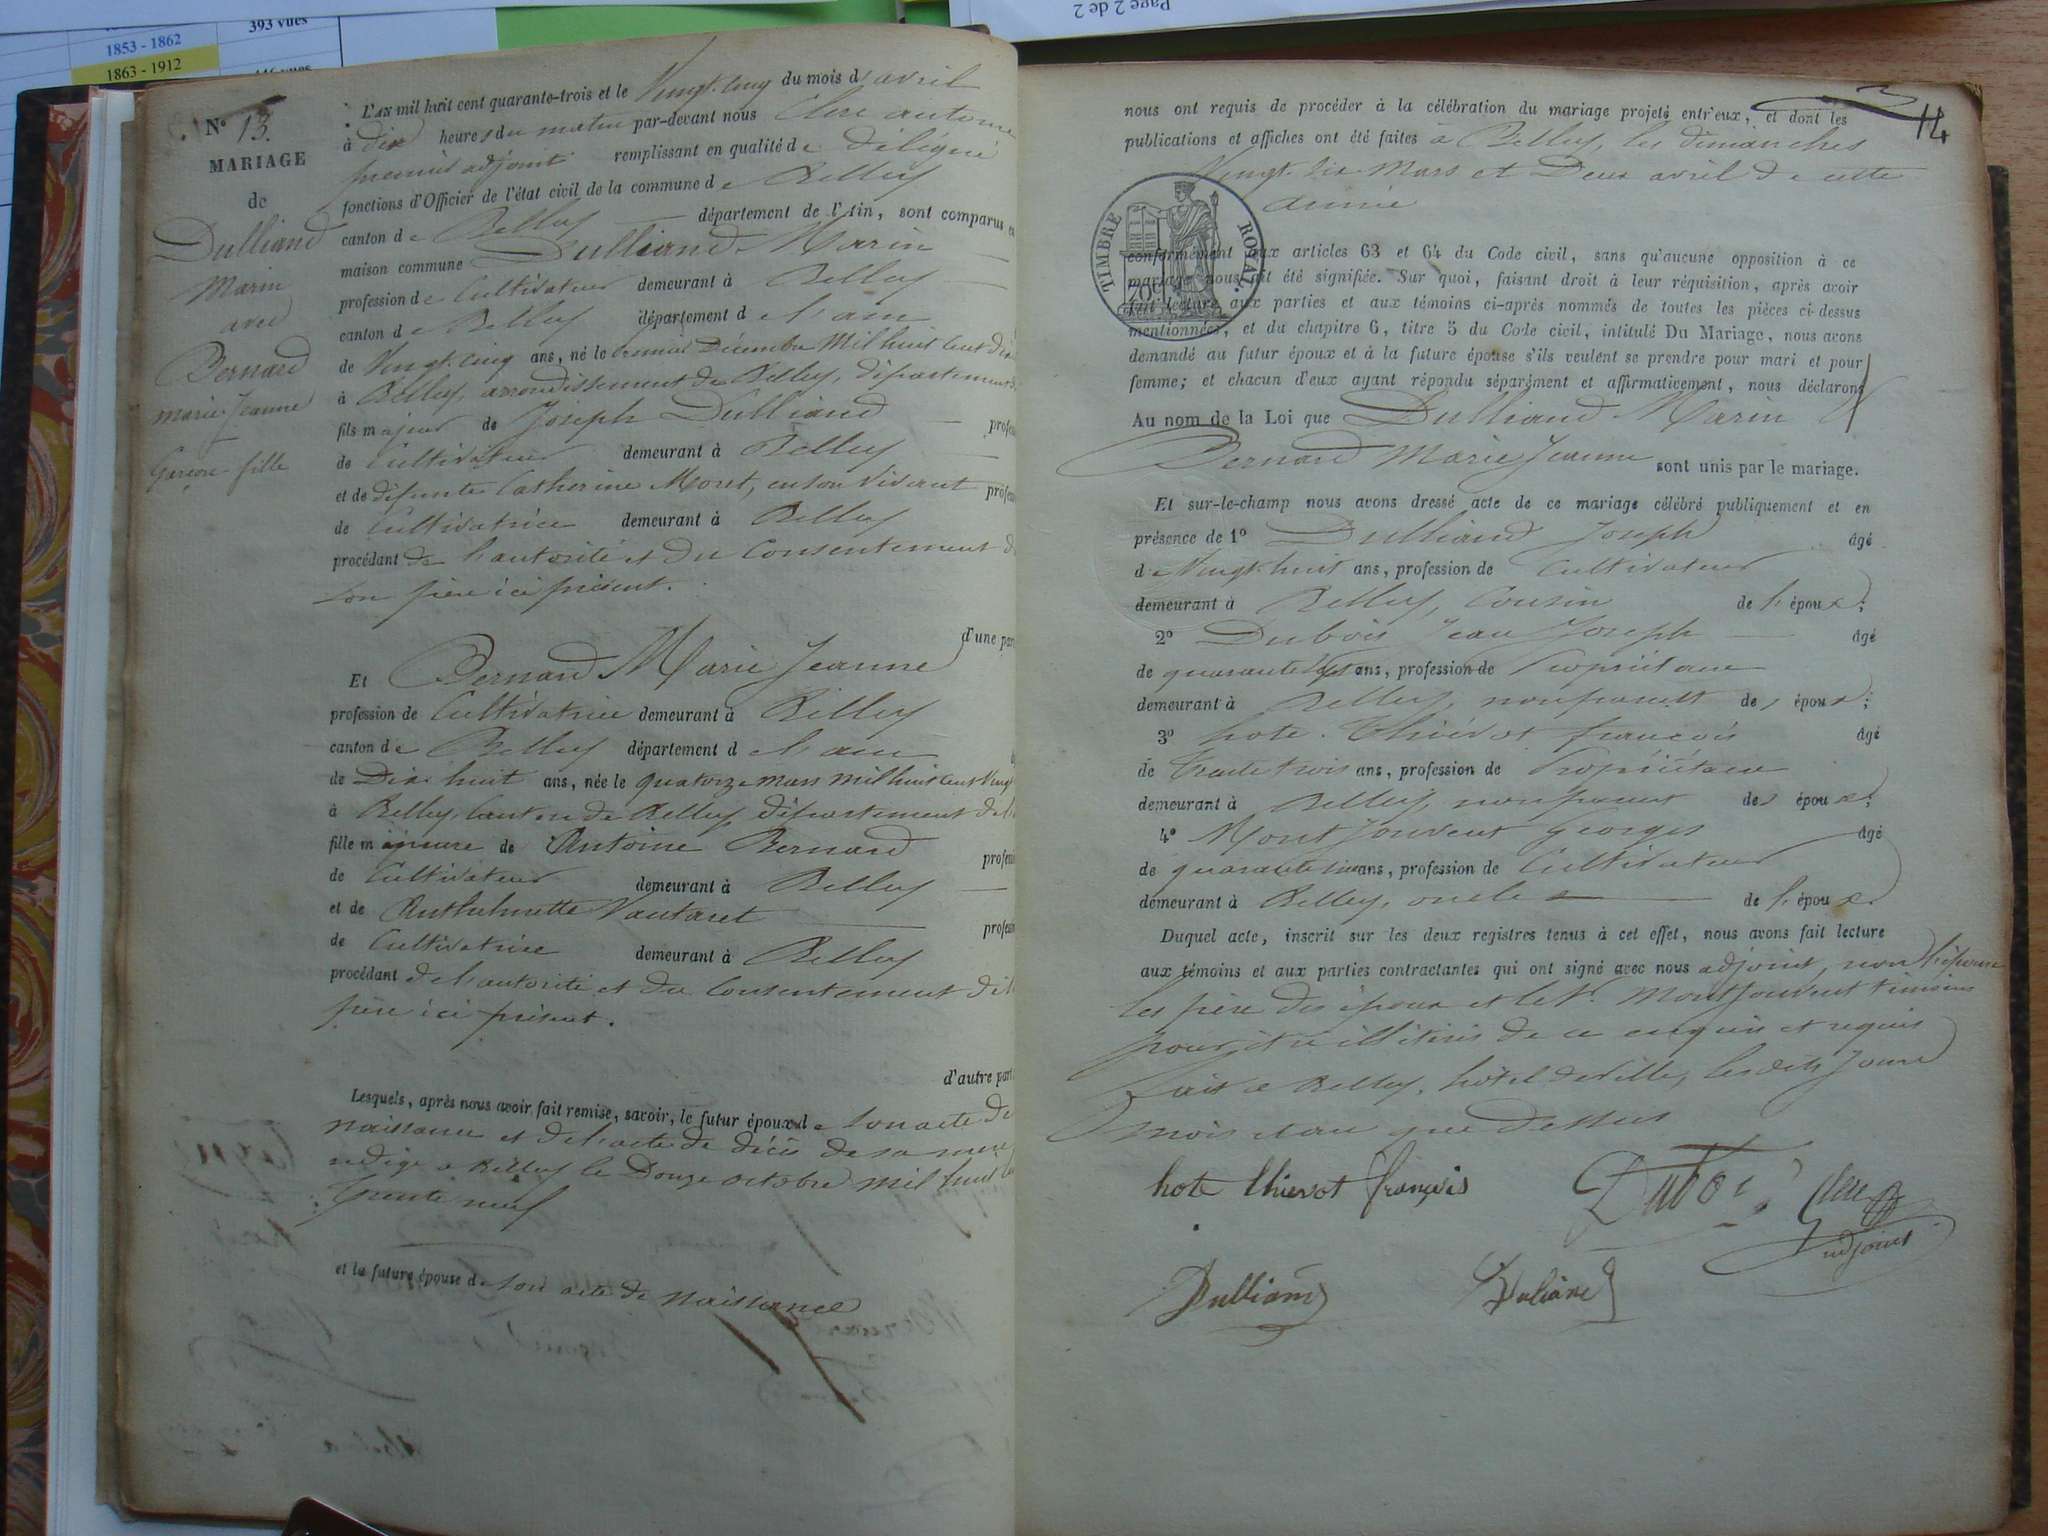 393 vues
1853 - 1862
1863 - 1912
Page 2 de 2
N° 13.
MARIAGE
de
Dulliand
Marin
avec
Bernard
marie Jeanne
Garçon fille
L'AN mil huit cent quarante-trois et le Vingt cinq du mois d'avril
à dix heures du matin par-devant nous Clerc antoine
premier adjoint remplissant en qualité de délégué
fonctions d'Officier de l'état civil de la commune de Belley
canton de Belley département de l'Ain, sont comparus en
maison commune Dulliand Marin
profession de Cultivateur demeurant à Belley
canton de Belley département de l'ain
de Vingt cinq ans, né le premier Décembre Mil huit cent dix
à Belley, arrondissement de Belley, département
fils majeur de Joseph Dulliand profes
de Cultivateur demeurant à Belley
et de défunte Catherine Moret, en son vivant profes
de Cultivatrice demeurant à Belley
procédant de l'autorité et du Consentement d
son père ici présent.
d'une par
Et Bernard Marie Jeanne
profession de Cultivatrice demeurant à Belley
canton de Belley département de l'ain
de Dix huit ans, née le quatorze mars mil huit cent Vingt
à Belley, Canton de Belley, département de l'
fille mineure de Antoine Bernard profes
de Cultivateur demeurant à Belley
et de Anthelmette Vautaret profes
de Cultivatrice demeurant à Belley
procédant de l'autorité et du Consentement de
père ici présent.
d'autre part
Lesquels, après nous avoir fait remise, savoir, le futur époux de son acte de
naissance et de l'acte de décès de sa mère
rédigé à Belley le Douze octobre mil huit cent
trente neuf
et la future épouse de son acte de naissance
14
nous ont requis de procéder à la célébration du mariage projeté entr'eux, et dont les
publications et affiches ont été faites à Belley, les dimanches
Vingt six Mars et Deux avril de cette
année
TIMBRE ROYAL.
conformément aux articles 63 et 64 du Code civil, sans qu'aucune opposition à ce
mariage nous ait été signifiée. Sur quoi, faisant droit à leur réquisition, après avoir
fait lecture aux parties et aux témoins ci-après nommés de toutes les pièces ci-dessus
mentionnées, et du chapitre 6, titre 5 du Code civil, intitulé Du Mariage, nous avons
demandé au futur époux et à la future épouse s'ils veulent se prendre pour mari et pour
femme; et chacun d'eux ayant répondu séparément et affirmativement, nous déclarons
Au nom de la Loi que Dulliand Marin &
Bernard Marie Jeanne sont unis par le mariage.
Et sur-le-champ nous avons dressé acte de ce mariage célébré publiquement et en
présence de 1° Dulliand Joseph âgé
de Vingt huit ans, profession de Cultivateur
demeurant à Belley, Cousin de l'époux;
2° Dubois Jean Joseph âgé
de quarante ans, profession de Propriétaire
demeurant à Belley, non parent des époux;
3° hote. Thievot françois âgé
de trente trois ans, profession de Propriétaire
demeurant à Belley, non parent des époux;
4° Montjouvent Georges âgé
de quarante ans, profession de Cultivateur
demeurant à Belley, oncle de l'époux.
Duquel acte, inscrit sur les deux registres tenus à cet effet, nous avons fait lecture
aux témoins et aux parties contractantes qui ont signé avec nous adjoint, non l'épouse
les père des époux et le Sr. Montjouvent témoins
pour être illitérés de ce enquis et requis
fait à Belley, hôtel de Ville, les dits Jours
mois et an que Dessus
hote thievot françois
Dubois
Clerc
adjoint
Dulliand
Duliand